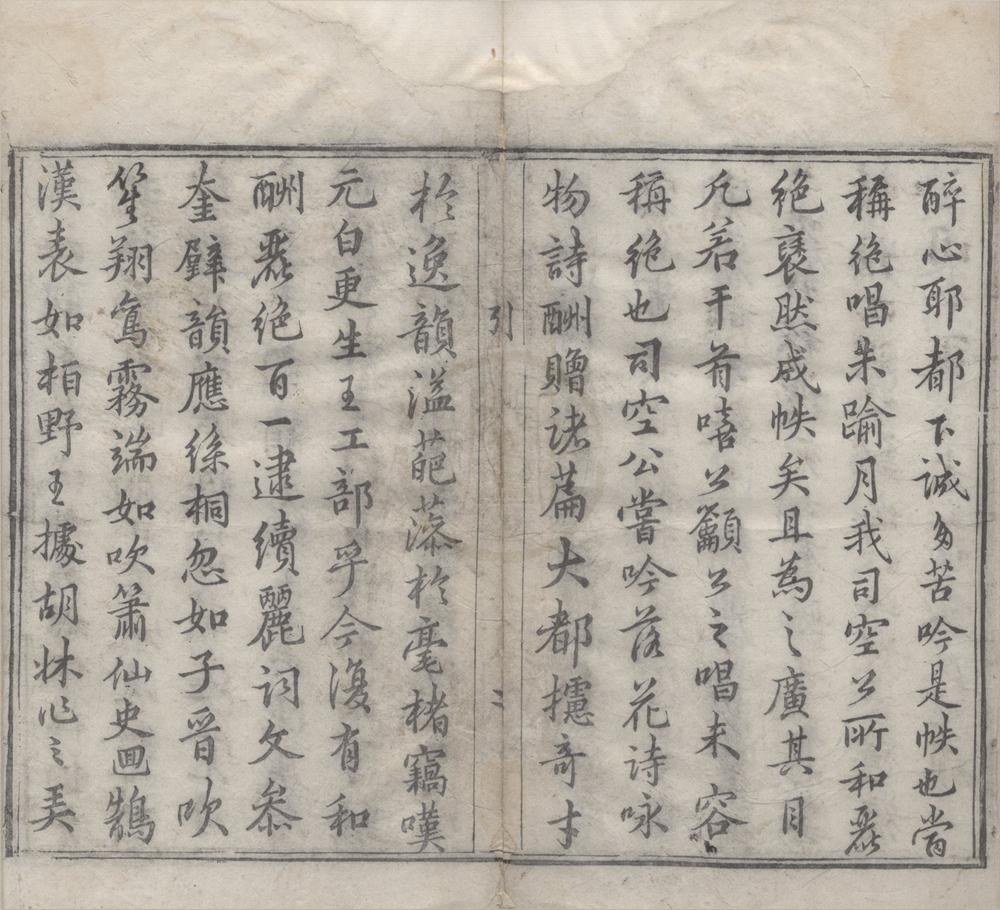 醉心耶都下誠多苦吟是帙也嘗
稱絕唱朱踰月我司空公所和羣
絕裒然成帙矣且為之廣其目
凡若干首嘻公籲公之唱未容
稱絕也司空公嘗吟落花詩咏
物詩酬贈諸篇大都攄奇才
引
二
於逸韻溢葩藻於毫楮竊嘆
元白更生王工部乎今復有和
酬羣絕百一逮續麗詞文叅
奎璧韻應絲桐忽如子晉吹
笙翔鳬霧端如吹簫仙史迴鵠
漢表如栢野王據胡牀作之弄